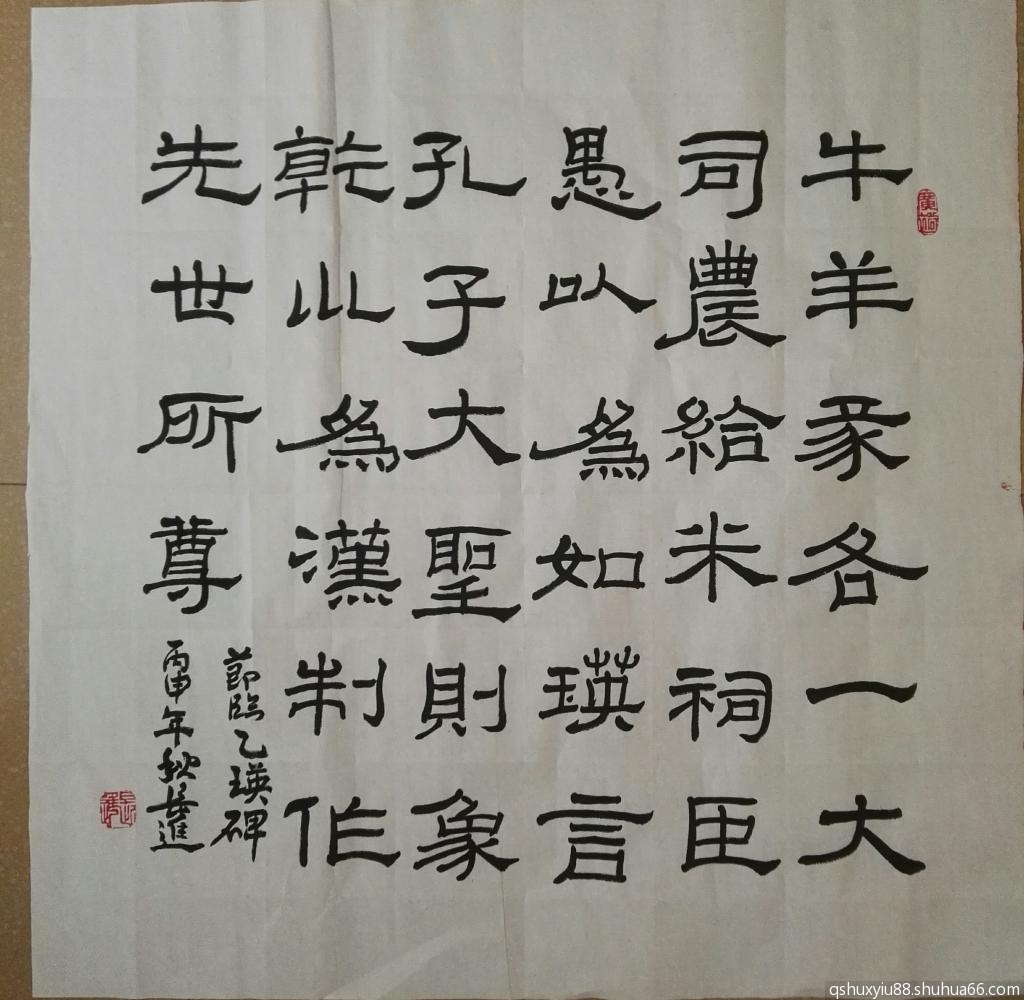 牛羊豕各一大
司農給米祠臣
愚以為如瑛言
孔子大聖則象
乾𡿦為漢制作
先世所尊
節臨乙瑛碑
丙申年秋
進
qshuxyiu88.shuhua66.com